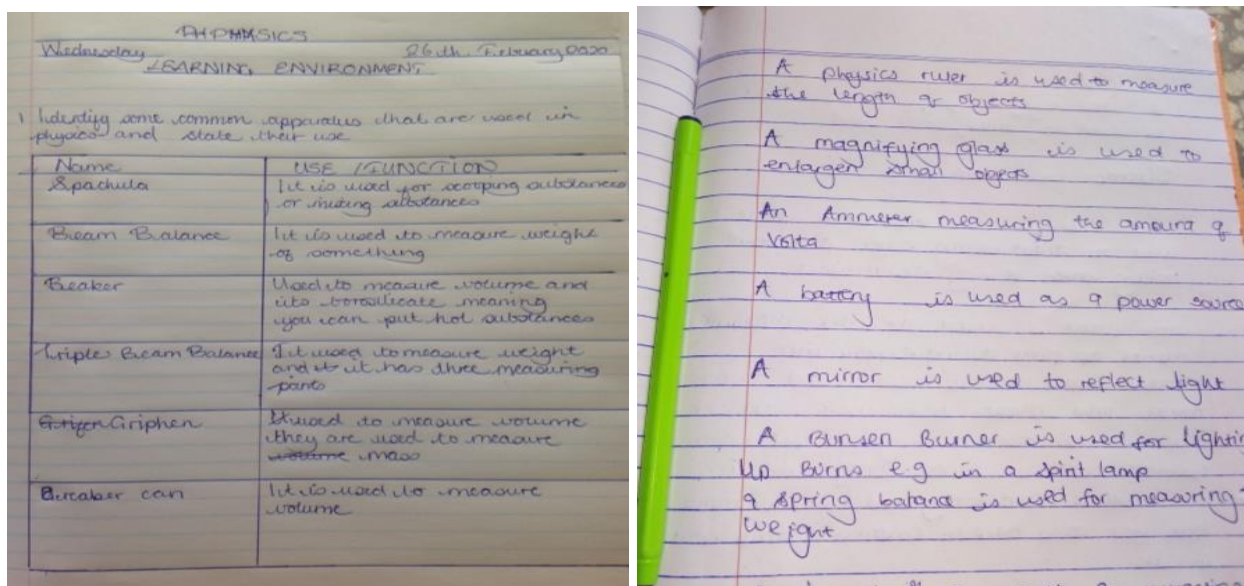 PHYSICS
Wednesday 26th February 2020
LEARNING ENVIRONMENT
1 Identify some common apparatus that are used in
physics and state their use
Name USE / FUNCTION
Spachula It is used for scooping substances
or mixing substances
Beam Balance It is used to measure weight
of something
Beaker Used to measure volume and
its borosilicate meaning
you can put hot substances
Triple Beam Balance It used to measure weight
and it has three measuring
pants
Griphen It used to measure volume
they are used to measure
volume mass
Bureaker can It is used to measure
volume
A physics ruler is used to measure
the length of objects
A magnifying glass is used to
enlargen small objects
An Ammeter measuring the amount of
Volta
A battery is used as a power source
A mirror is used to reflect light
A Bunsen Burner is used for lighti
up Burns e.g in a spirit lamp
a spring balance is used for measuring
weight